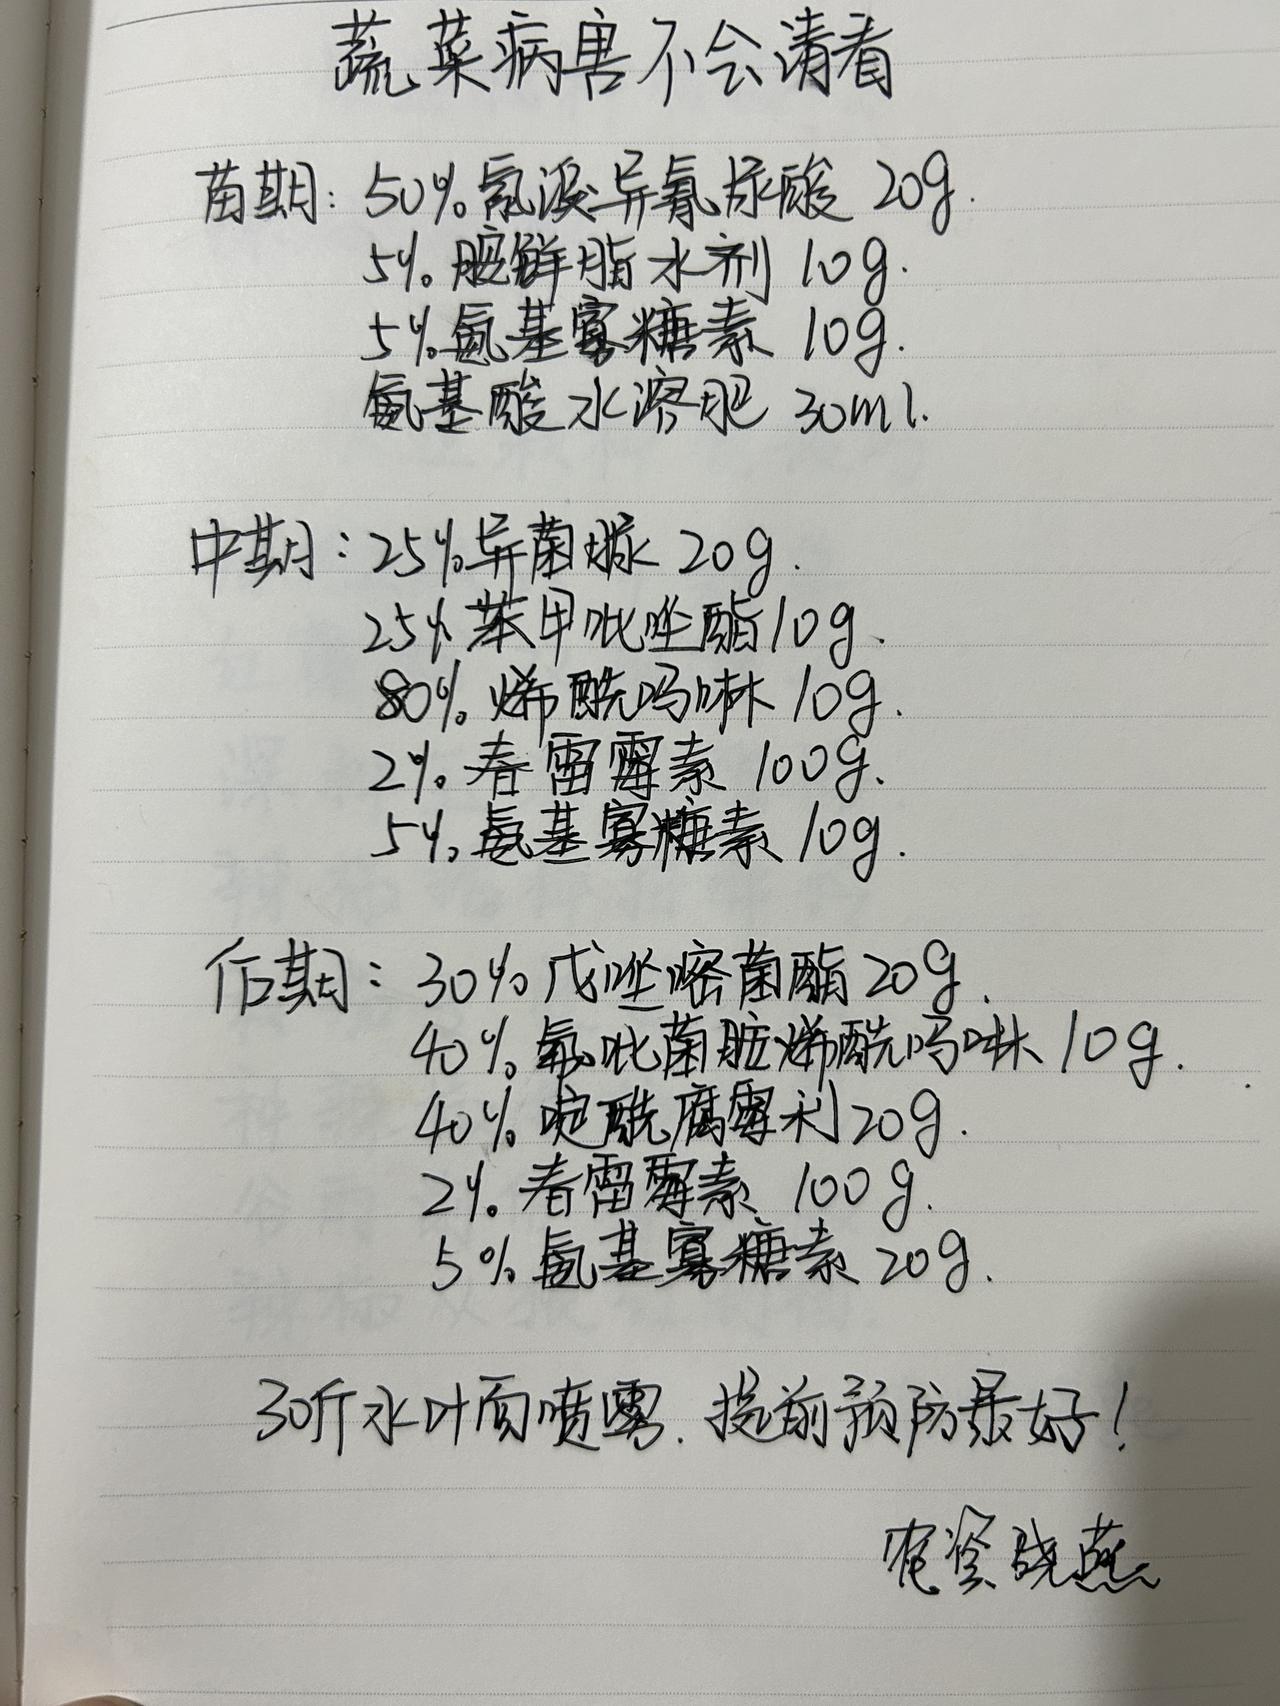 蔬菜病害不会请看
苗期：50%氯溴异氰尿酸 20g.
5%胺鲜脂水剂 10g.
5%氨基寡糖素 10g.
氨基酸水溶肥 30ml.
中期：25%异菌脲 20g.
25%苯甲吡唑酯10g.
80%烯酰吗啉 10g.
2%春雷霉素 100g.
5%氨基寡糖素 10g.
后期：30%戊唑嘧菌酯20g.
40%氟吡菌胺烯酰吗啉 10g.
40%啶酰腐霉利20g.
2%春雷霉素 100g.
5%氨基寡糖素 20g.
30斤水叶面喷雾.提前预防最好！
农资晓燕